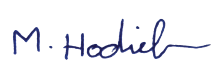 M. Hodieb